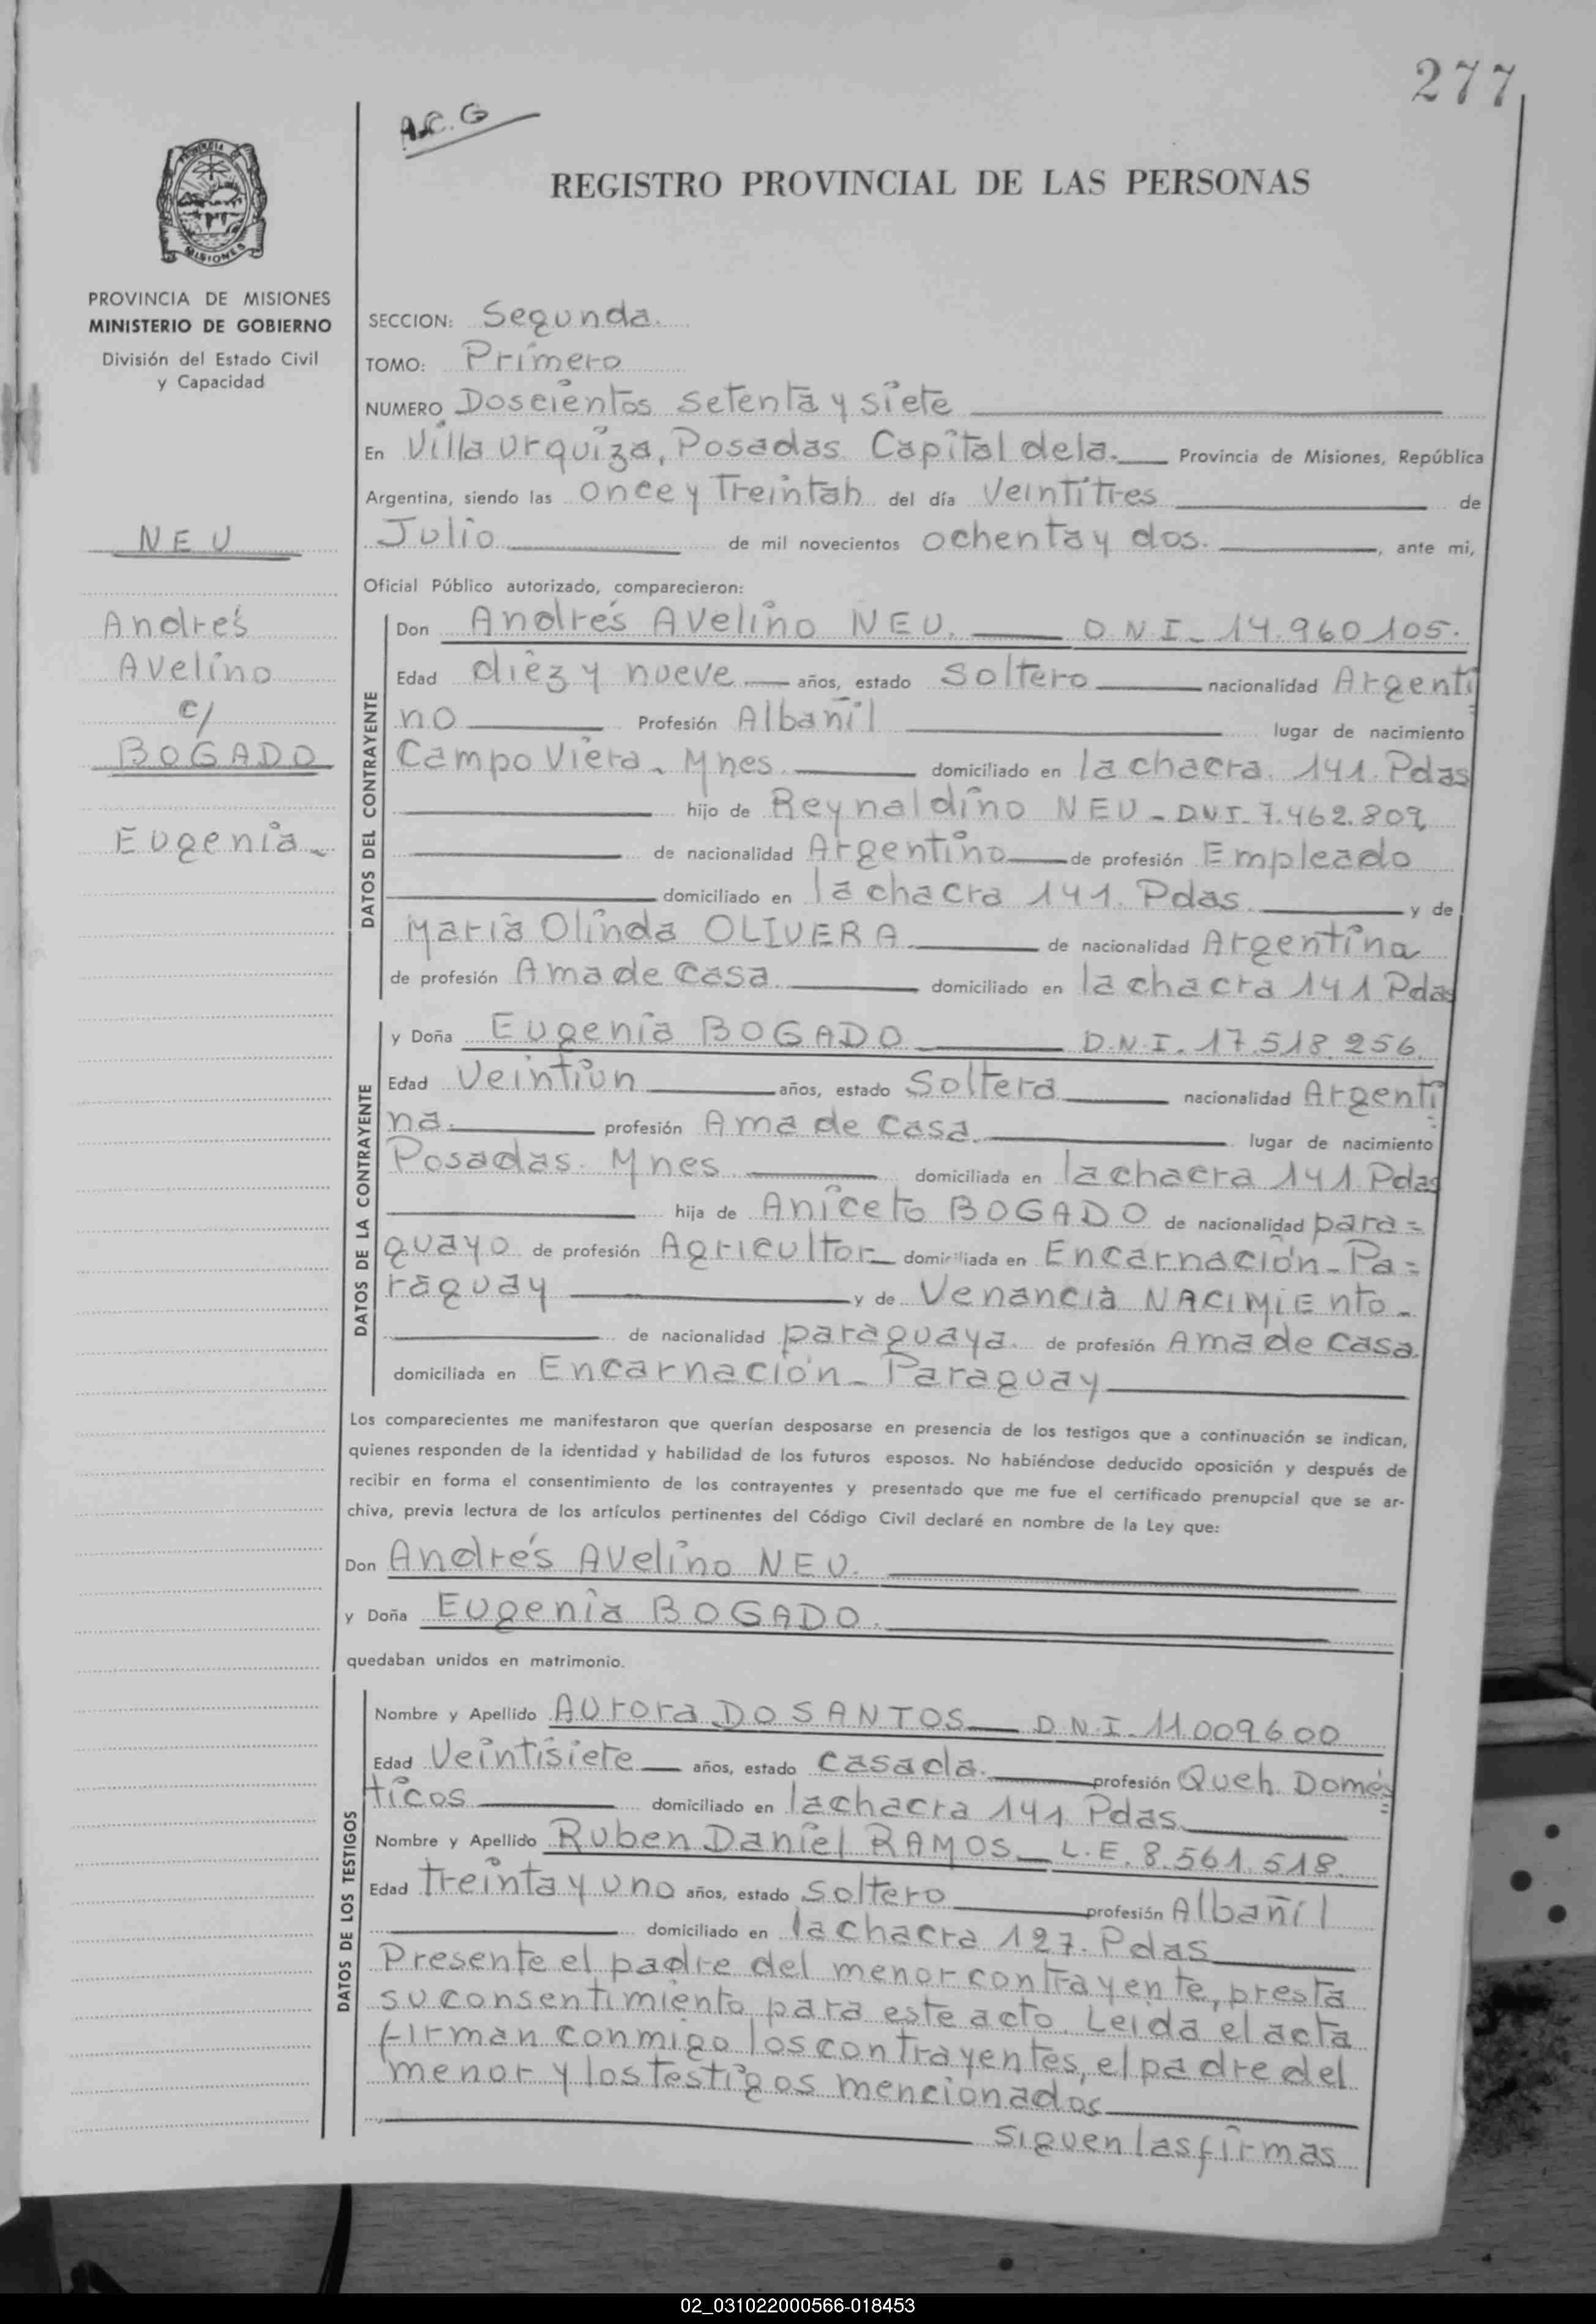 277
A.C.G
REGISTRO PROVINCIAL DE LAS PERSONAS
PROVINCIA DE MISIONES
MINISTERIO DE GOBIERNO
División del Estado Civil
y Capacidad
NEU
Andrés
Avelino
c/
BOGADO
Eugenia
SECCION: Segunda.
TOMO: Primero
NUMERO Doscientos setenta y siete
En Villa Urquiza, Posadas Capital de la. Provincia de Misiones, República
Argentina, siendo las once y Treintah del día Veintitres de
Julio de mil novecientos ochenta y dos. , ante mi,
Oficial Público autorizado, comparecieron:
DATOS DEL CONTRAYENTE
Don Andrés Avelino NEU. D.N.I. 14.960.105.
Edad diez y nueve años, estado Soltero nacionalidad Argenti
no Profesión Albañil lugar de nacimiento
Campo Viera. Mnes. domiciliado en la chacra. 141. Pdas
hijo de Reynaldino NEU - DNI. 7.462.809
de nacionalidad Argentino de profesión Empleado
domiciliado en la chacra 141. Pdas. y de
María Olinda OLIVERA de nacionalidad Argentina
de profesión Ama de casa. domiciliado en la chacra 141 Pdas
DATOS DE LA CONTRAYENTE
y Doña Eugenia BOGADO D.N.I. 17.518.256.
Edad Veintiun años, estado Soltera nacionalidad Argenti
na. profesión Ama de casa. lugar de nacimiento
Posadas. Mnes domiciliada en la chacra 141 Pdas
hija de Aniceto BOGADO de nacionalidad para=
guayo de profesión Agricultor domiciliada en Encarnación - Pa=
raguay y de Venancia NACIMIEnto -
de nacionalidad paraguaya. de profesión Ama de casa.
domiciliada en Encarnación - Paraguay
Los comparecientes me manifestaron que querían desposarse en presencia de los testigos que a continuación se indican,
quienes responden de la identidad y habilidad de los futuros esposos. No habiéndose deducido oposición y después de
recibir en forma el consentimiento de los contrayentes y presentado que me fue el certificado prenupcial que se ar-
chiva, previa lectura de los artículos pertinentes del Código Civil declaré en nombre de la Ley que:
Don Andrés Avelino NEU.
y Doña Eugenia BOGADO.
quedaban unidos en matrimonio.
DATOS DE LOS TESTIGOS
Nombre y Apellido Aurora DO SANTOS D.N.I. 11.009600
Edad Veintisiete años, estado casada. profesión Queh. Domés
ticos domiciliado en la chacra 141. Pdas.
Nombre y Apellido Ruben Daniel RAMOS L.E. 8.561.518.
Edad treinta y uno años, estado soltero profesión Albañil
domiciliado en la chacra 127. Pdas
Presente el padre del menor contrayente, presta
su consentimiento para este acto. Leida el acta
firman conmigo los contrayentes, el padre del
menor y los testigos mencionados
Siguen las firmas
02_031022000566-018453